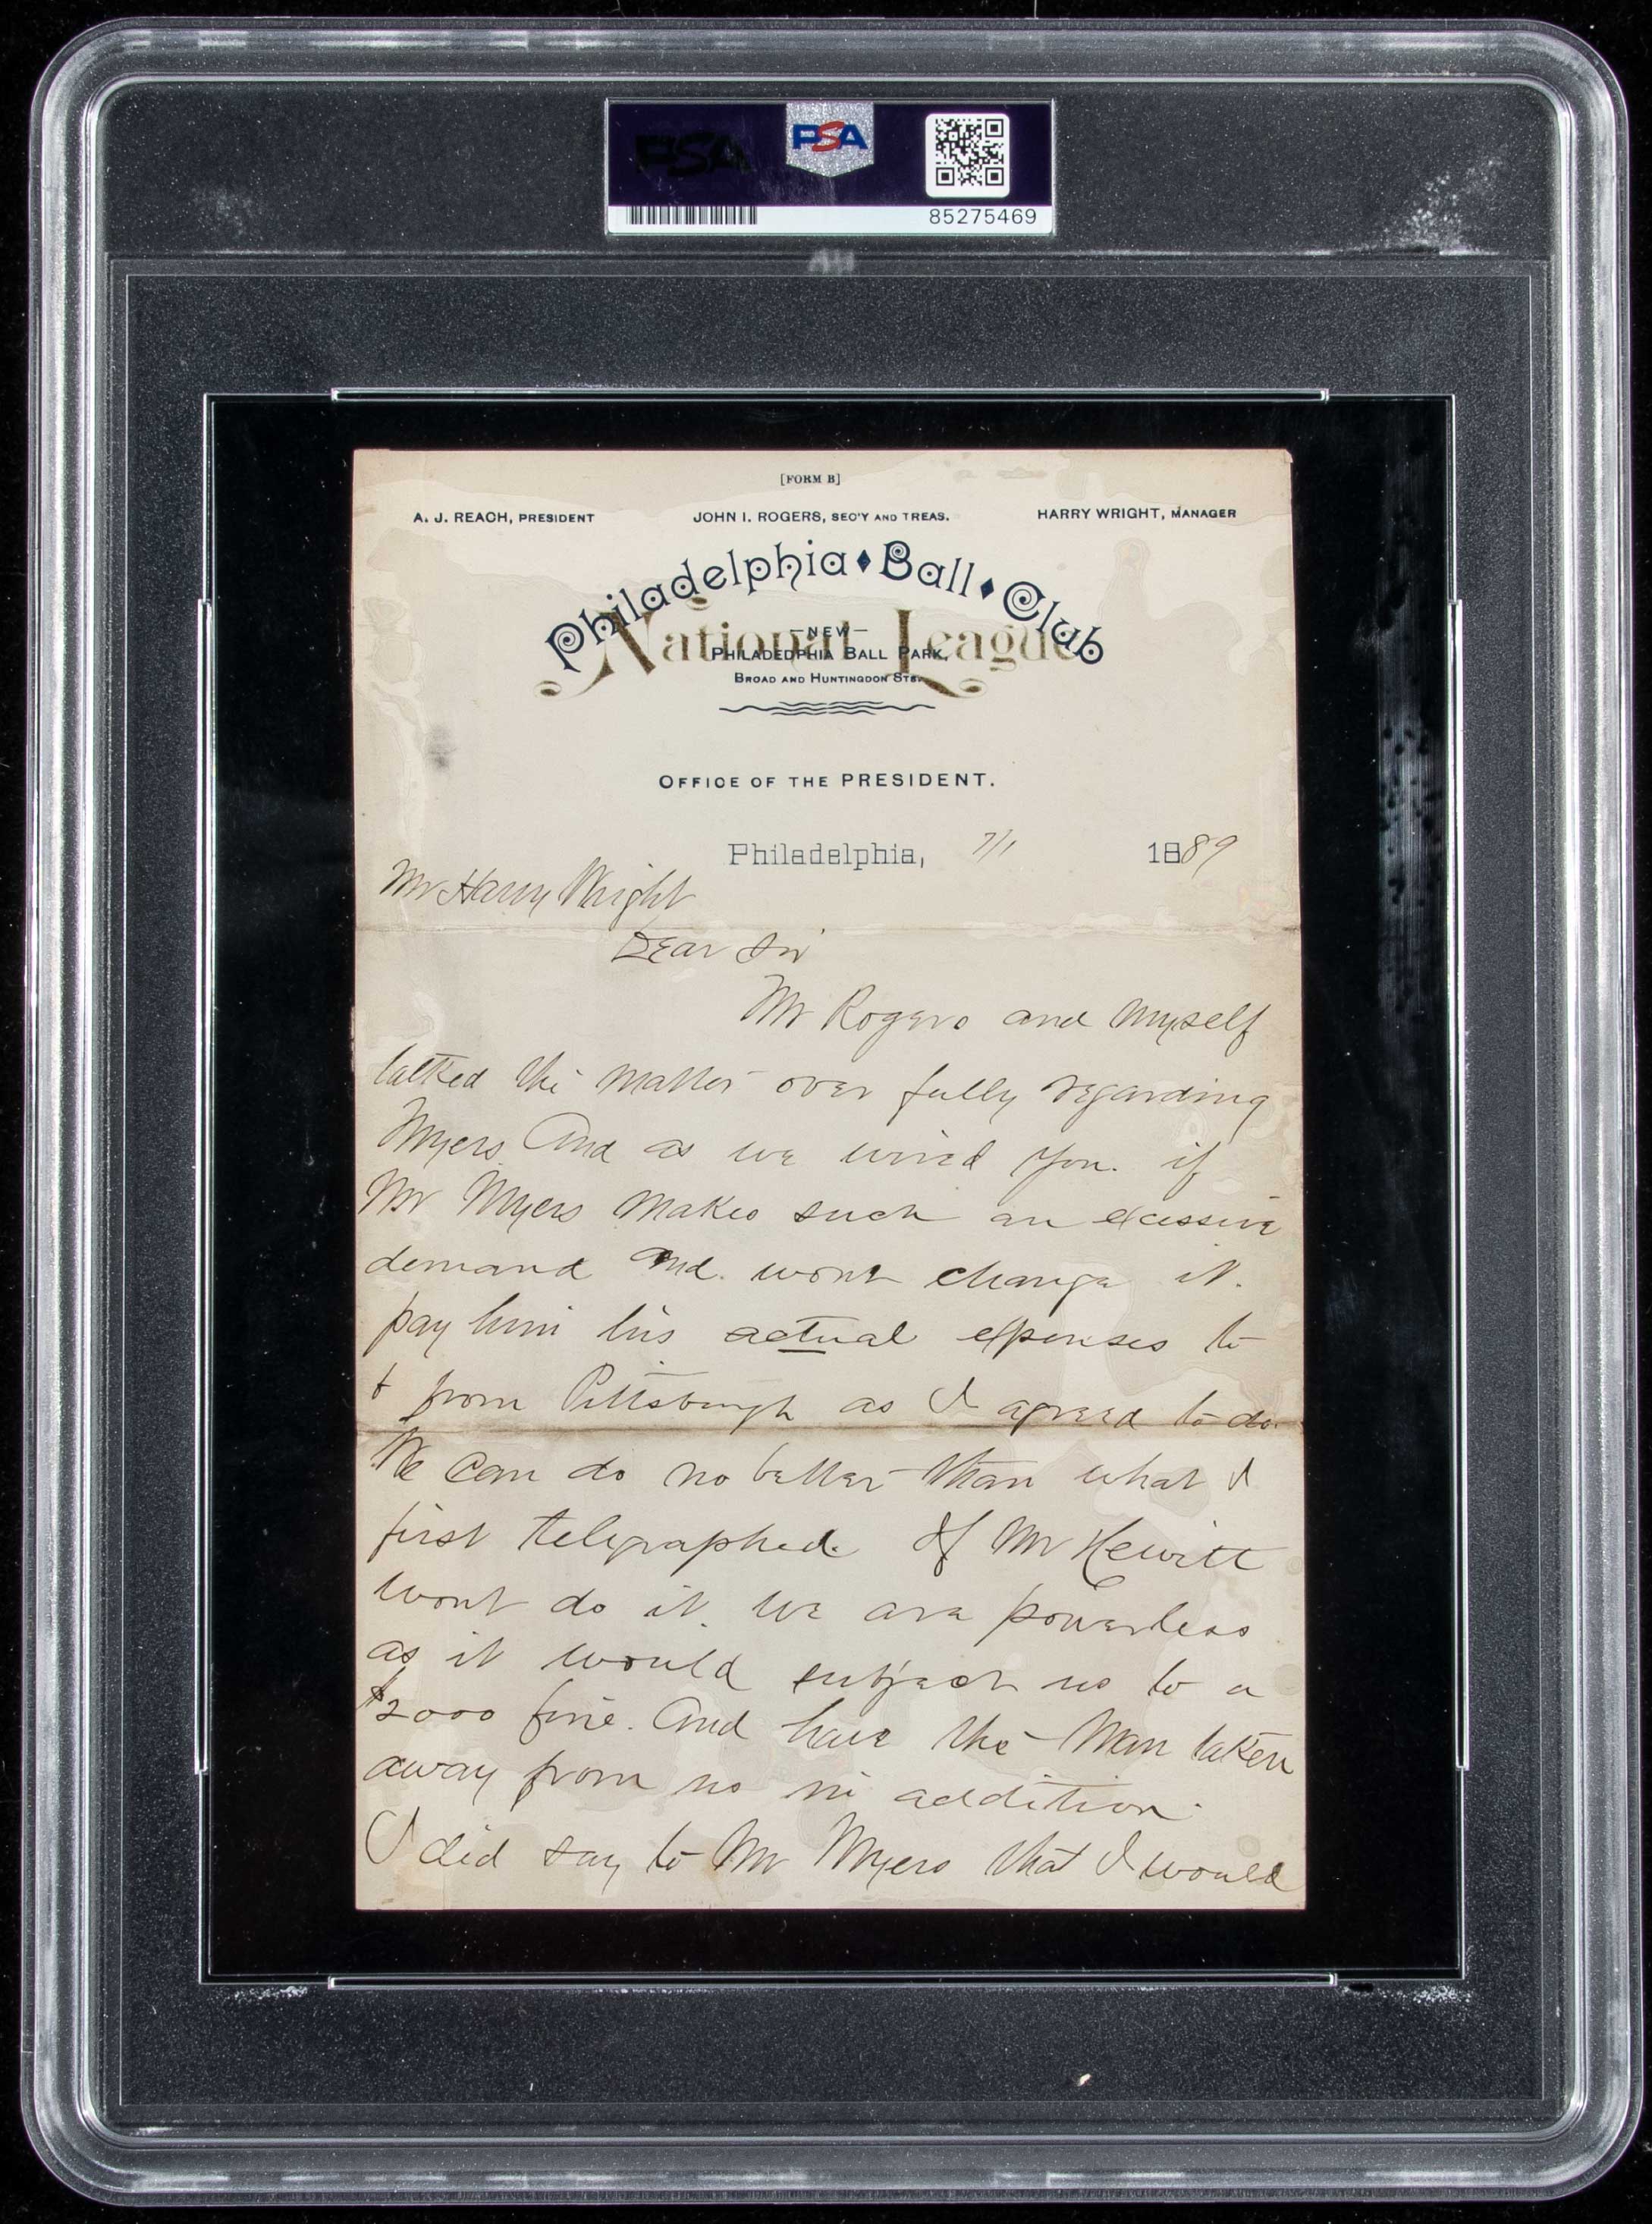 PSA
PSA
85275469
[FORM B]
A. J. REACH, PRESIDENT
JOHN I. ROGERS, SEC'Y AND TREAS.
HARRY WRIGHT, MANAGER
Philadelphia Ball Club
National League
—NEW—
PHILADEDPHIA BALL PARK,
BROAD AND HUNTINGDON STS.
OFFICE OF THE PRESIDENT.
Philadelphia, 7/1 1889
Mr Harry Wright
Dear Sir
Mr Rogers and Myself
talked the matter over fully regarding
Myers And as we wired you. if
Mr Myers makes such an excessive
demand and. wont change it.
pay him his actual expenses to
& from Pittsburgh as I agreed to do.
We can do no better than what I
first telegraphed. If Mr Hewitt
wont do it. we are powerless
as it would subject us to a
$2000 fine. And have the Man taken
away from us in addition.
I did say to Mr Myers that I would